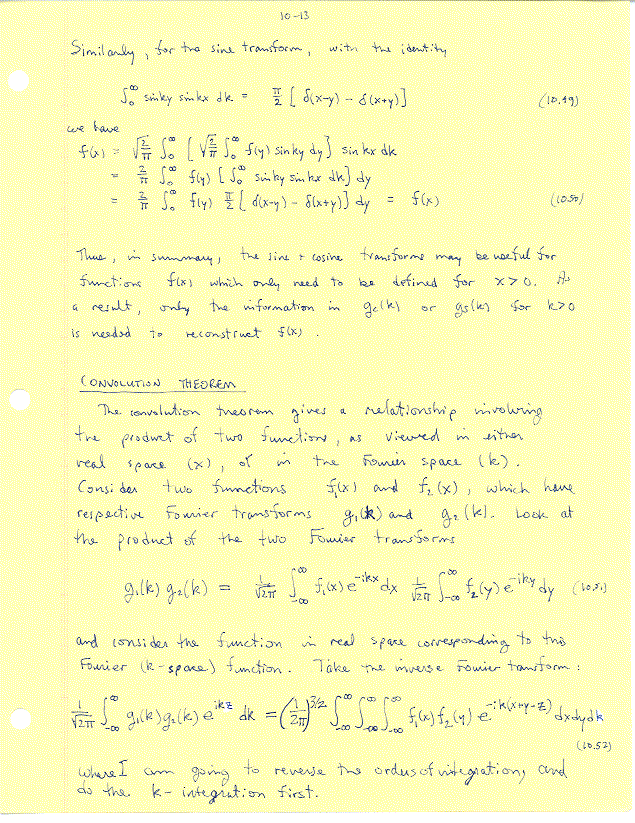 10-13
Similarly, for the sine transform, with the identity
∫₀^∞ sin ky sin kx dk = π/2 [ δ(x-y) - δ(x+y) ] (10.49)
we have
f(x) = √(2/π) ∫₀^∞ [ √(2/π) ∫₀^∞ f(y) sin ky dy ] sin kx dk
= 2/π ∫₀^∞ f(y) [ ∫₀^∞ sin ky sin kx dk ] dy
= 2/π ∫₀^∞ f(y) π/2 [ δ(x-y) - δ(x+y) ] dy = f(x) (10.50)
Thus, in summary, the sine + cosine transforms may be useful for
functions f(x) which only need to be defined for x>0. As
a result, only the information in g_c(k) or g_s(k) for k>0
is needed to reconstruct f(x).
CONVOLUTION THEOREM
The convolution theorem gives a relationship involving
the product of two functions, as viewed in either
real space (x), or in the Fourier space (k).
Consider two functions f₁(x) and f₂(x), which have
respective Fourier transforms g₁(k) and g₂(k). Look at
the product of the two Fourier transforms
g₁(k) g₂(k) = 1/√2π ∫_-∞^∞ f₁(x) e^-ikx dx 1/√2π ∫_-∞^∞ f₂(y) e^-iky dy (10.51)
and consider the function in real space corresponding to this
Fourier (k-space) function. Take the inverse Fourier transform:
1/√2π ∫_-∞^∞ g₁(k) g₂(k) e^ikz dk = (1/2π)^3/2 ∫_-∞^∞ ∫_-∞^∞ ∫_-∞^∞ f₁(x) f₂(y) e^-ik(x+y-z) dx dy dk
(10.52)
where I am going to reverse the orders of integration, and
do the k-integration first.